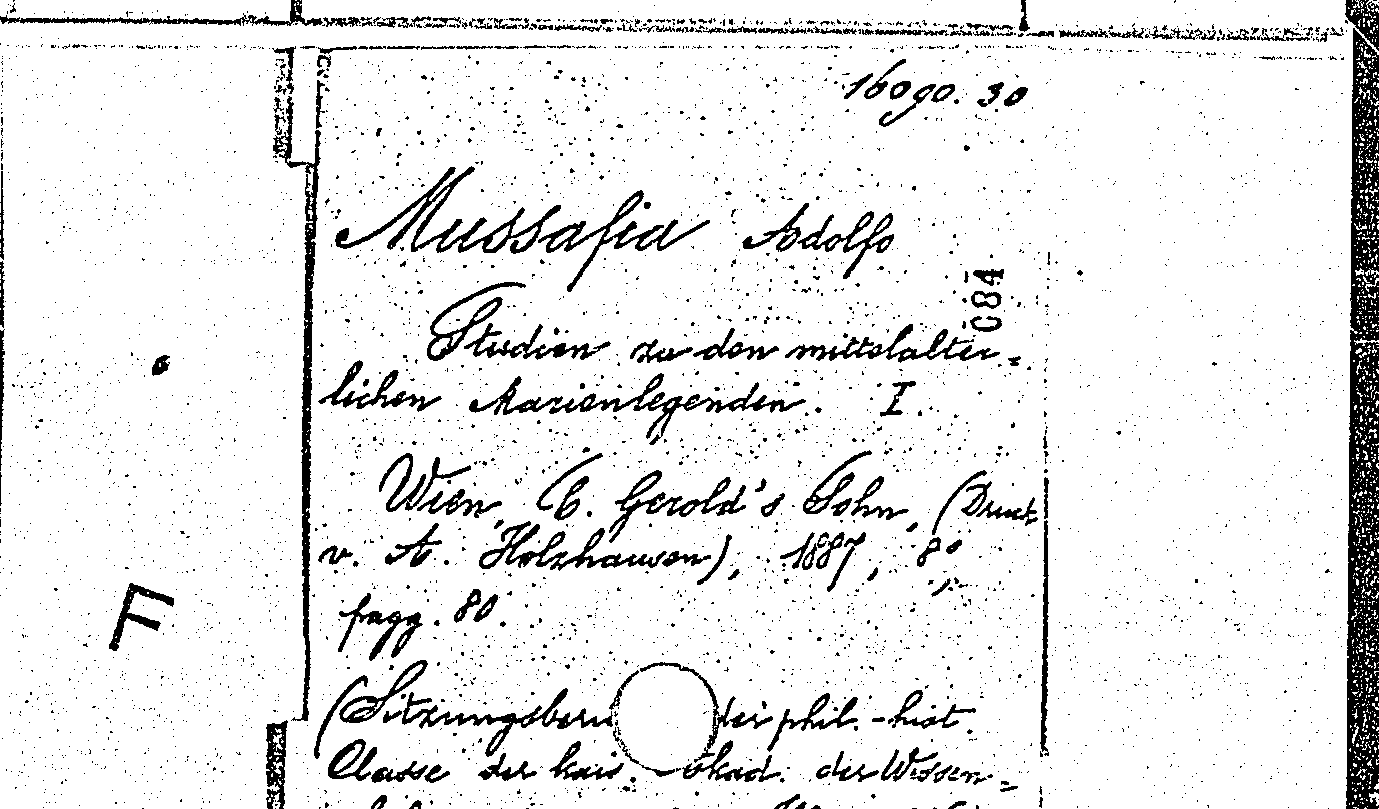 16090.30
Mussafia Adolfo
084
Studien zu den mittelalter-
lichen Marienlegenden. I.
Wien, C. Gerold's Sohn, (Druck
v. A. Holzhausen), 1887, 8°,
pagg. 80.
F
(Sitzungsberi der phil.-hist.
Classe der kais. Akad. der Wissen-